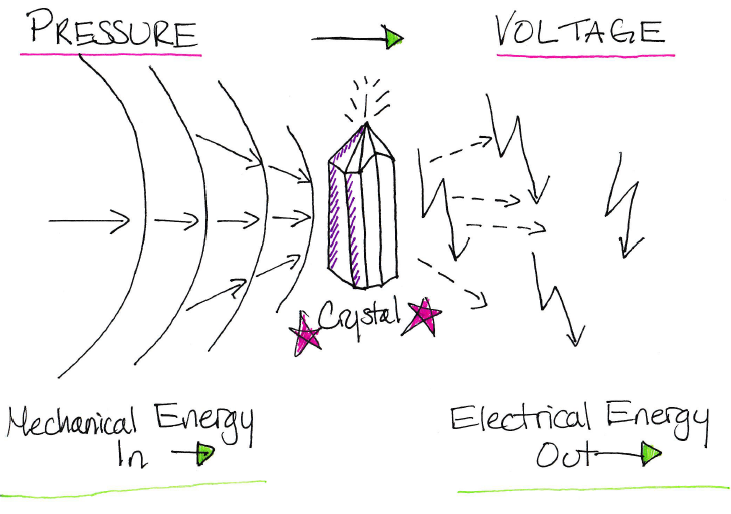 PRESSURE
VOLTAGE
Crystal
Mechanical Energy
In
Electrical Energy
Out